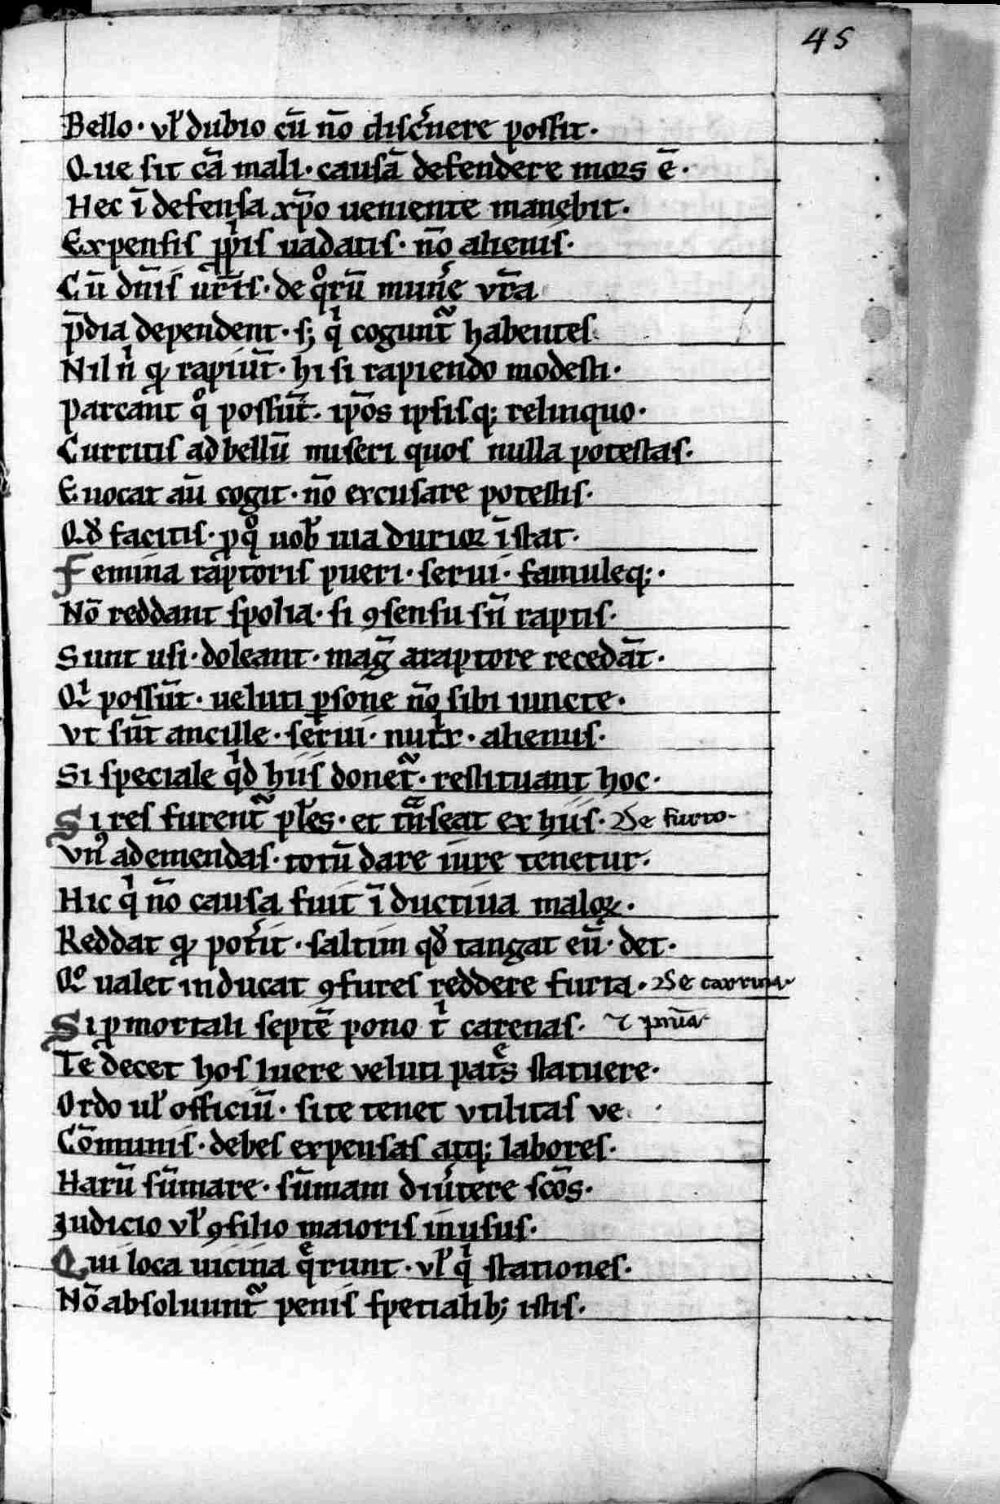 45
Bello· vł dubio cū nō discˀnere possit·
Que sit cā mali· causā defendere mors ē·
Hec ī defensa xp̄o ueniente manebit·
Expensis ꝓpͥis uadatis· nō alienis·
Cū dn̄is ur̄is· de qͦrū munˀe vr̄a
p̄dia dependent· s; qͥ coguntˀ habentes·
Nil nͥ qꝫ rapiūt· hi si rapiendo modesti·
Parcant qͦ possūt· ip̄os ipsisq; relinquo·
Curritis ad bellū miseri quos nulla potestas·
Euocat aū cogit· nō excusare potestis·
Qđ facitis· ꝓ qͦ uob̄ uia durior īstat·
Femina raptoris pueri· serui· famuleq;·
Nō reddant spolia· si ꝯsensu sn̄ raptis·
Sunt usi· doleant· mag̃ a raptore recedāt·
Qͥ possūt· ueluti ꝑsone nō sibi iuncte·
Vt sūt ancille· serui· nutͥx· alienus·
Si speciale qͥd hiis donetˀ· restituant hoc·
Si res furentˀ pl̄es· et t̄nseat ex hiis· De furto·
Vnꝰ ad emendas· totū dare iure tenetur·
Hic qͥ nō causa fuit īductiua maloꝝ·
Reddat qꝫ potˀit· saltim qđ tangat eū· det·
Qͦ ualet inducat ꝯfures reddere furta· De carrina·
Si ꝑ mortali septē pono tͥ carenas· ⁊ pn̄ia·
Te decet hos luere veluti patˀs statuere·
Ordo uł officiū· si te tenet vtilitas ve
Cōmunis· debes expensas atq; labores·
Harū sūmare· sūmam diuˀtere scōs·
Iudicio vł ꝯsilio maioris in usus·
Qui loca uicina qͣrunt· vł qͥ stationes·
Nō absoluuntˀ penis specialib; istis·